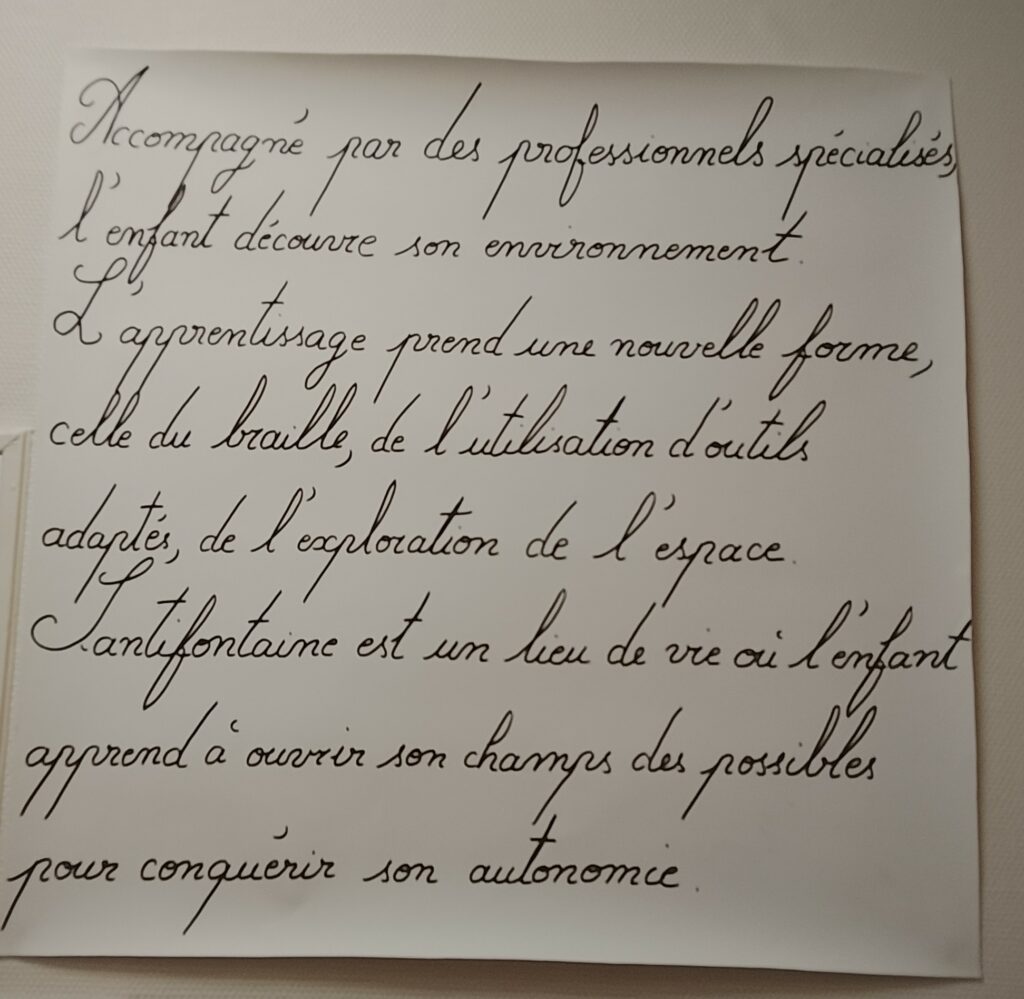 Accompagné par des professionnels spécialisés,
l'enfant découvre son environnement.
L'apprentissage prend une nouvelle forme,
celle du braille, de l'utilisation d'outils
adaptés, de l'exploration de l'espace.
Santifontaine est un lieu de vie où l'enfant
apprend à ouvrir son champs des possibles
pour conquérir son autonomie.